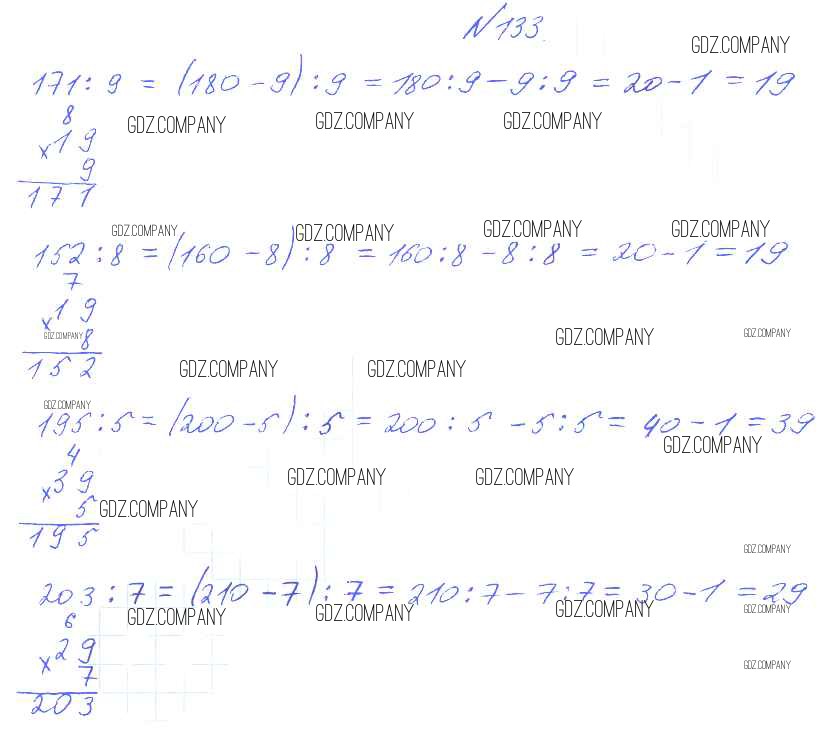 №133.
GDZ.COMPANY
171 : 9 = (180 - 9) : 9 = 180 : 9 - 9 : 9 = 20 - 1 = 19
8
GDZ.COMPANY GDZ.COMPANY GDZ.COMPANY
x 19
9
171
GDZ.COMPANY GDZ.COMPANY GDZ.COMPANY GDZ.COMPANY
152 : 8 = (160 - 8) : 8 = 160 : 8 - 8 : 8 = 20 - 1 = 19
7
x 19
GDZ.COMPANY 8 GDZ.COMPANY GDZ.COMPANY
152 GDZ.COMPANY GDZ.COMPANY
GDZ.COMPANY
195 : 5 = (200 - 5) : 5 = 200 : 5 - 5 : 5 = 40 - 1 = 39
GDZ.COMPANY
4
x 39 GDZ.COMPANY GDZ.COMPANY
5 GDZ.COMPANY
195
GDZ.COMPANY
203 : 7 = (210 - 7) : 7 = 210 : 7 - 7 : 7 = 30 - 1 = 29
GDZ.COMPANY GDZ.COMPANY GDZ.COMPANY GDZ.COMPANY
6
x 29
7 GDZ.COMPANY
203